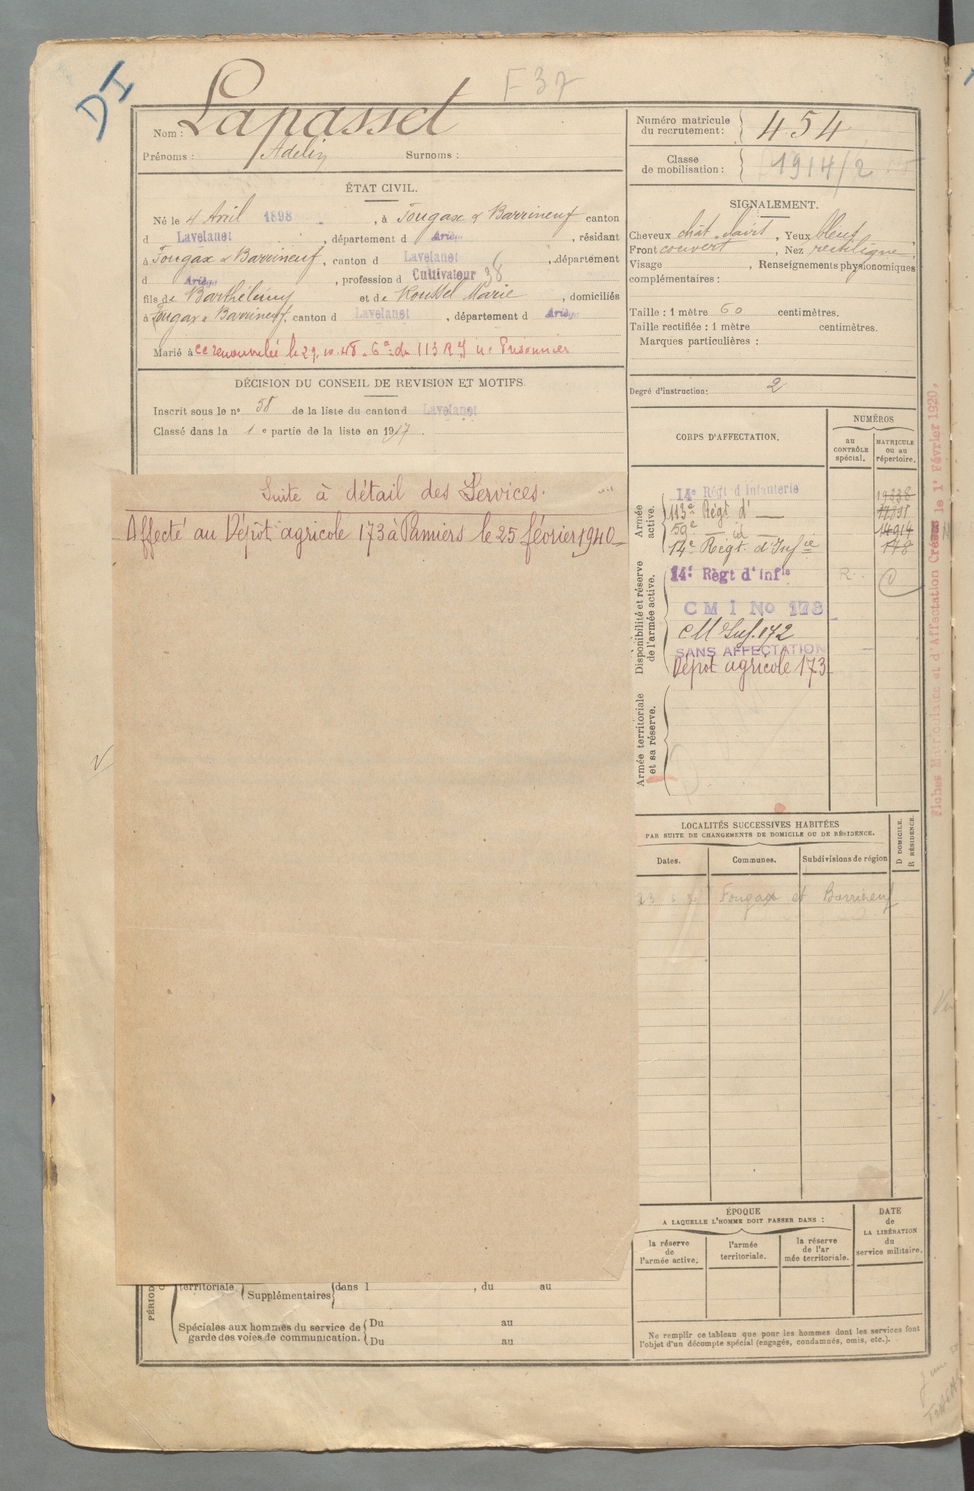 DI
F 37
Nom : Lapasset
Prénoms : Adelin Surnoms :
Numéro matricule du recrutement : 454
Classe de mobilisation : 1914/2
ÉTAT CIVIL.
Né le 4 Avril 1898, à Fougax et Barrineuf canton
d Lavelanet, département d Ariège, résidant
à Fougax et Barrineuf, canton d Lavelanet, département
d Ariège, profession d Cultivateur 38
fils de Barthélemy et de Roussel Marie, domiciliés
à Fougax et Barrineuf, canton d Lavelanet, département d Ariège
Marié à
Prisonnier
DÉCISION DU CONSEIL DE REVISION ET MOTIFS
Inscrit sous le n° 58 de la liste du canton d Lavelanet
Classé dans la 1e partie de la liste en 1917.
Suite à détail des Services.
Affecté au Dépôt agricole 173 à Pamiers le 25 février 1940
SIGNALEMENT.
Cheveux chât. clairs, Yeux bleus
Front couvert, Nez rectiligne
Visage , Renseignements physionomiques
complémentaires :
Taille : 1 mètre 60 centimètres.
Taille rectifiée : 1 mètre centimètres.
Marques particulières :
Degré d'instruction : 2
CORPS D'AFFECTATION.
NUMÉROS
au CONTRÔLE spécial.
MATRICULE ou au répertoire.
Armée active.
14e Régt d'Infanterie
113e Régt d° —
59e — id —
14e Régt d'Infie
Disponibilité et réserve de l'armée active.
14e Règt d'Infie R.
C M I No 178
CM Inf. 172
SANS AFFECTATION
Dépôt agricole 173
Armée territoriale et sa réserve.
Fiches Matricules et d'Affectation Créées le 1er Février 1920.
LOCALITÉS SUCCESSIVES HABITÉES
PAR SUITE DE CHANGEMENTS DE DOMICILE OU DE RÉSIDENCE.
Dates. Communes. Subdivisions de région
D DOMICILE. R RÉSIDENCE.
Fougax et Barrineuf
ÉPOQUE
A LAQUELLE L'HOMME DOIT PASSER DANS :
la réserve de l'armée active.
l'armée territoriale.
la réserve de l'armée territoriale.
DATE de LA LIBÉRATION du service militaire.
Ne remplir ce tableau que pour les hommes dont les services font
l'objet d'un décompte spécial (engagés, condamnés, omis, etc.).
territoriale
Supplémentaires dans l , du au
Spéciales aux hommes du service de garde des voies de communication.
Du au
Du au